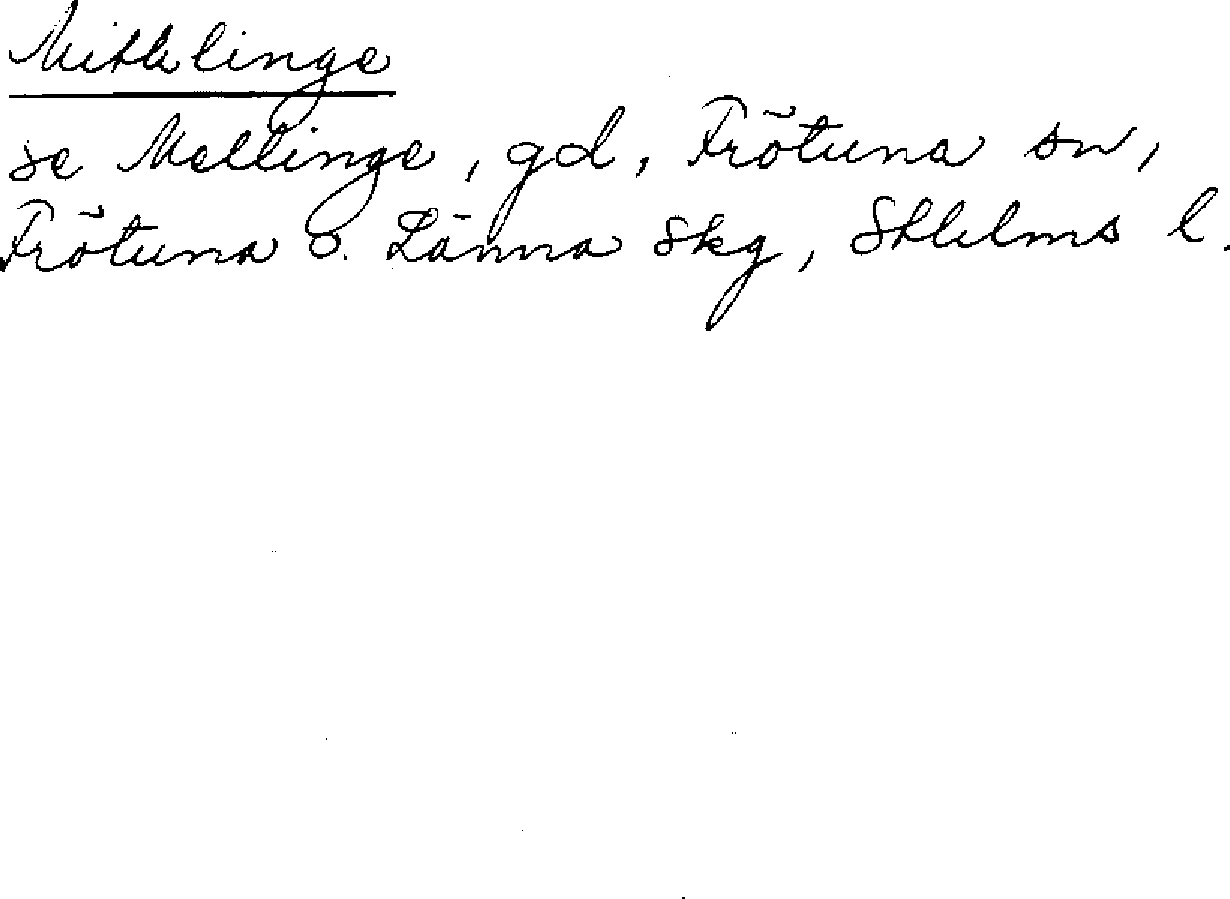 Mithlinge
se Mellinge, gd, Frötuna sn,
Frötuna o. Länna skg, Sthlms l.